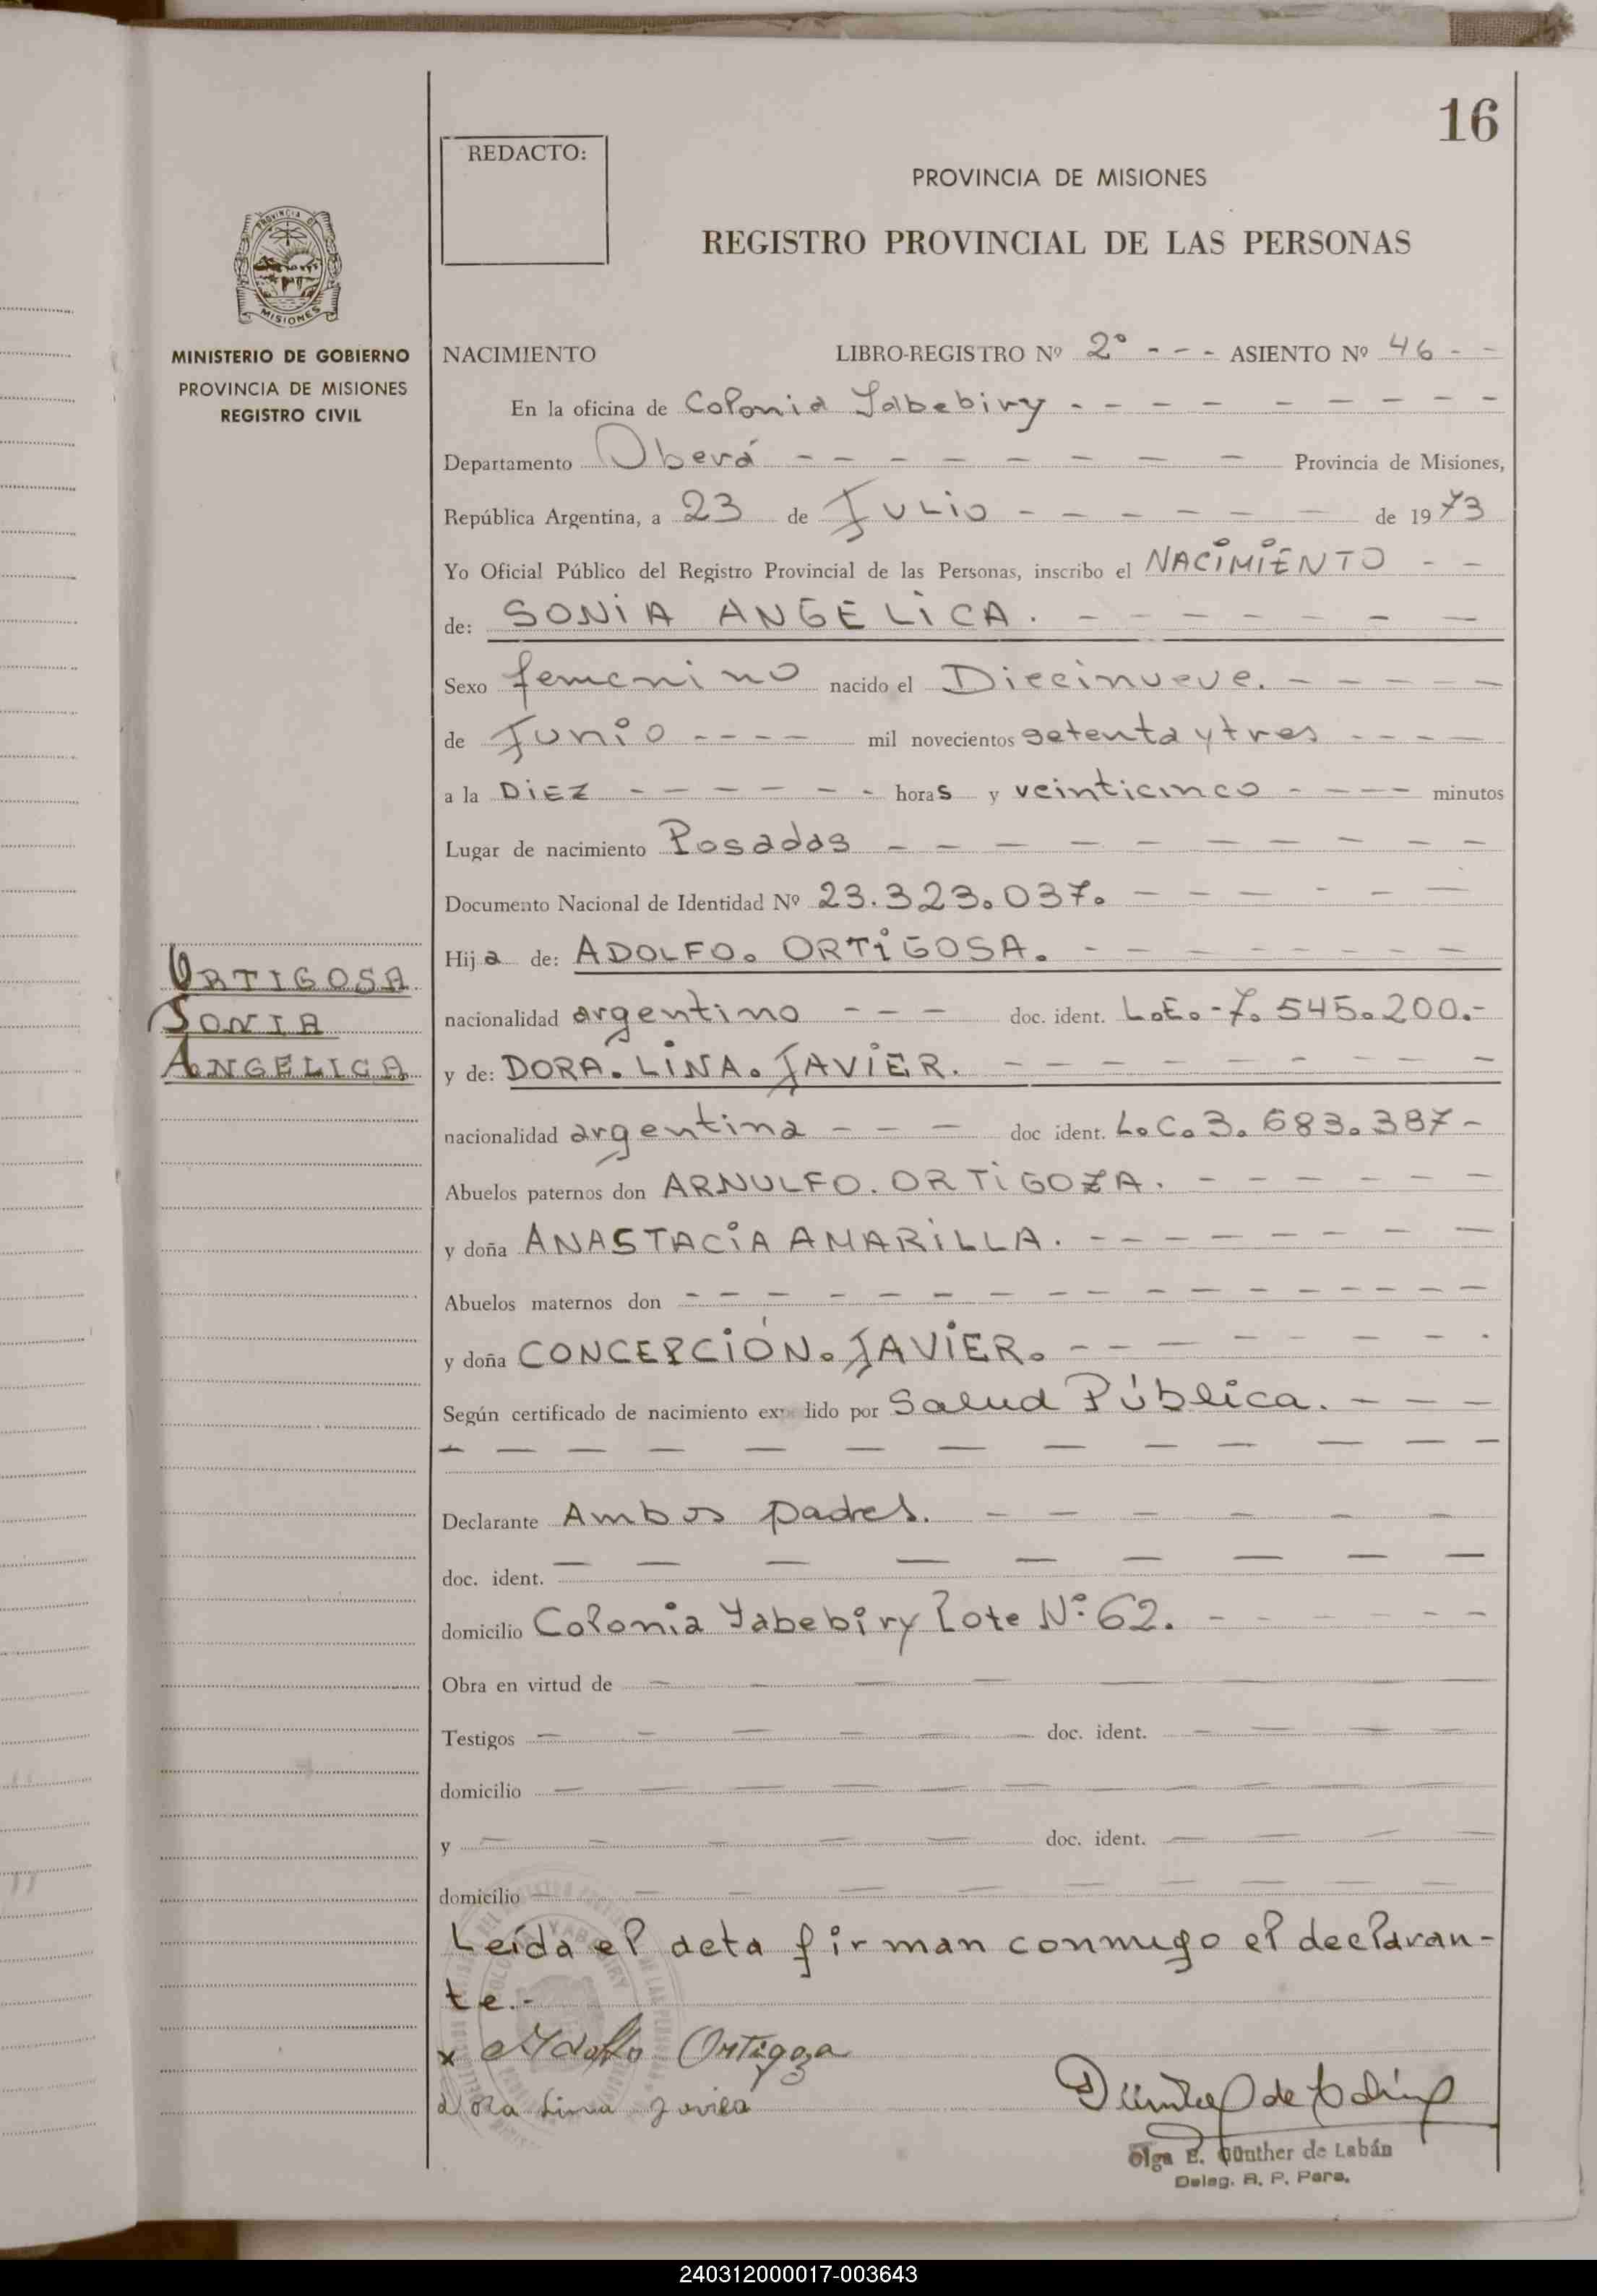 16
REDACTO:
PROVINCIA DE MISIONES
REGISTRO PROVINCIAL DE LAS PERSONAS
PROVINCIA DE
MISIONES
MINISTERIO DE GOBIERNO
PROVINCIA DE MISIONES
REGISTRO CIVIL
NACIMIENTO LIBRO-REGISTRO Nº 2º - - - ASIENTO Nº 46 - -
En la oficina de Colonia Yabebiry - - - - - - - - -
Departamento Oberá - - - - - - - - Provincia de Misiones,
República Argentina, a 23 de Julio - - - - - - de 1973
Yo Oficial Público del Registro Provincial de las Personas, inscribo el NACIMIENTO - -
de: SONIA ANGELICA. - - - - - - - -
Sexo femenino nacido el Diecinueve. - - - - -
de Junio - - - - mil novecientos setenta y tres - - - -
a la DIEZ - - - - - - - horas y veinticinco - - - - - minutos
Lugar de nacimiento Posadas - - - - - - - - - -
Documento Nacional de Identidad Nº 23.323.037. - - - - - -
Hija de: ADOLFO. ORTIGOSA. - - - - - - -
nacionalidad argentino - - - doc. ident. L.E. - 7.545.200.-
y de: DORA. LINA. JAVIER. - - - - - - - - -
nacionalidad argentina - - - doc ident. L.C. 3.683.387 -
Abuelos paternos don ARNULFO. ORTIGOZA. - - - - - -
y doña ANASTACIA AMARILLA. - - - - - - - -
Abuelos maternos don - - - - - - - - - - - - - - -
y doña CONCEPCIÓN. JAVIER. - - - - - - - -
Según certificado de nacimiento ex lido por Salud Pública. - - -
- - - - - - - - - - - -
Declarante Ambos padres. - - - - - -
doc. ident. - - - - - - - - -
domicilio Colonia Yabebiry Lote Nº 62. - - - - - -
Obra en virtud de - - - - - - -
Testigos - - - - - doc. ident. - - - -
domicilio - - - - - - - - - -
y - - - - - doc. ident. - - - -
domicilio - - - - - - - - - -
Leída el acta firman conmigo el declaran-
te.-
x Adolfo Ortigoza
Dora Lina Javier
Olga E. Günther de Labán
Deleg. R. P. Pers.
ORTIGOSA
SONIA
ANGELICA
240312000017-003643